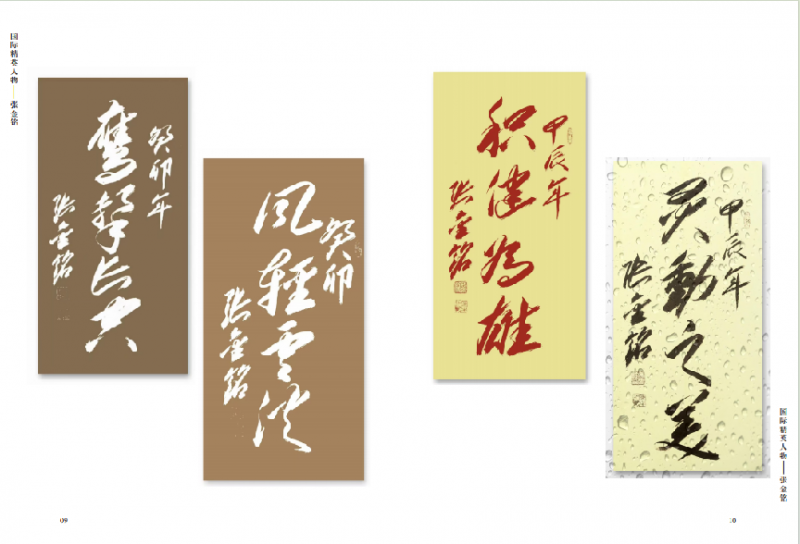 国际精英人物——张金铭
鹰擊长空
癸卯年
张金铭
风輕雲淡
癸卯
张金铭
09
积健为雄
甲辰年
张金铭
灵動之美
甲辰年
张金铭
国际精英人物——张金铭
10